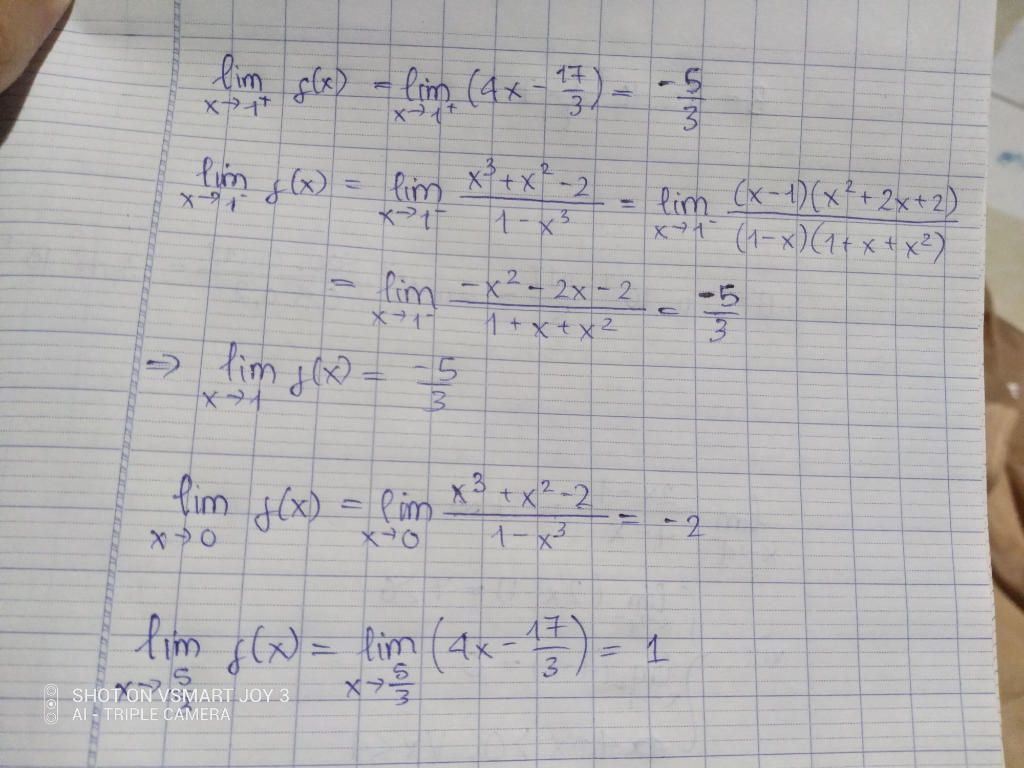 lim x→1⁺ f(x) = lim x→1⁺ (4x - 17/3) = -5/3
lim x→1⁻ f(x) = lim x→1⁻ (x³ + x² - 2)/(1 - x³) = lim x→1⁻ (x-1)(x² + 2x + 2)/(1-x)(1 + x + x²)
= lim x→1⁻ (-x² - 2x - 2)/(1 + x + x²) = -5/3
⇒ lim x→1 f(x) = -5/3
lim x→0 f(x) = lim x→0 (x³ + x² - 2)/(1 - x³) = -2
lim x→5/3 f(x) = lim x→5/3 (4x - 17/3) = 1
SHOT ON VSMART JOY 3
AI - TRIPLE CAMERA